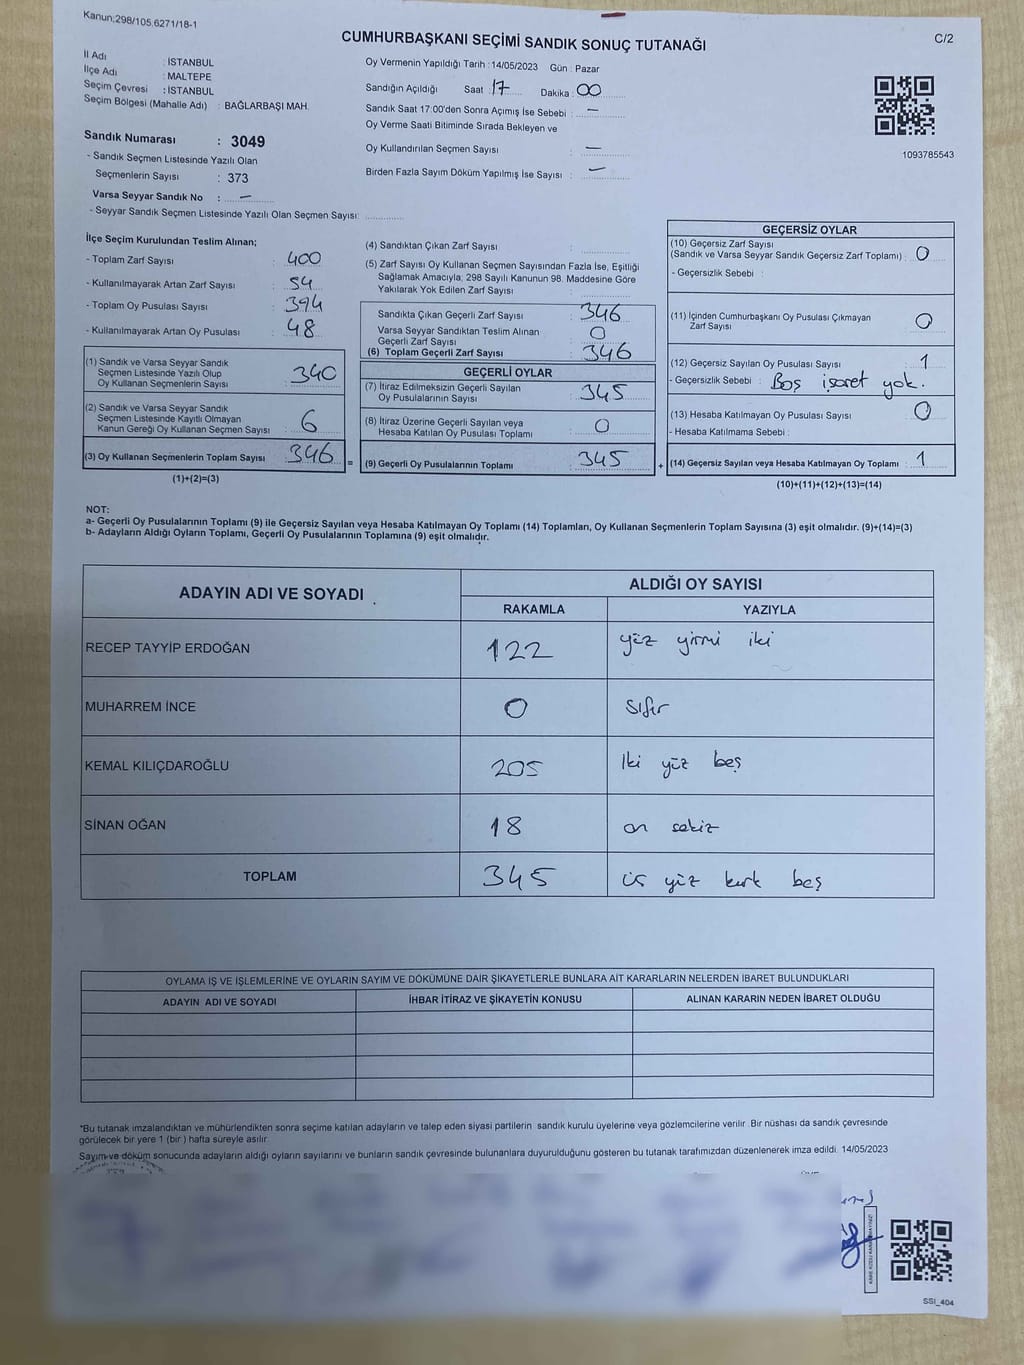 Kanun:298/105,6271/18-1
CUMHURBAŞKANI SEÇİMİ SANDIK SONUÇ TUTANAĞI
C/2
İl Adı : İSTANBUL
İlçe Adı : MALTEPE
Seçim Çevresi : İSTANBUL
Seçim Bölgesi (Mahalle Adı) : BAĞLARBAŞI MAH.
Oy Vermenin Yapıldığı Tarih : 14/05/2023 Gün : Pazar
Sandığın Açıldığı Saat : 17 Dakika : 00
Sandık Saat 17:00'den Sonra Açımış İse Sebebi : —
Oy Verme Saati Bitiminde Sırada Bekleyen ve
Oy Kullandırılan Seçmen Sayısı : —
Birden Fazla Sayım Döküm Yapılmış İse Sayısı : —
1093785543
Sandık Numarası : 3049
- Sandık Seçmen Listesinde Yazılı Olan
Seçmenlerin Sayısı : 373
Varsa Seyyar Sandık No : —
- Seyyar Sandık Seçmen Listesinde Yazılı Olan Seçmen Sayısı:
İlçe Seçim Kurulundan Teslim Alınan;
- Toplam Zarf Sayısı : 400
- Kullanılmayarak Artan Zarf Sayısı : 54
- Toplam Oy Pusulası Sayısı : 394
- Kullanılmayarak Artan Oy Pusulası : 48
(1) Sandık ve Varsa Seyyar Sandık
Seçmen Listesinde Yazılı Olup
Oy Kullanan Seçmenlerin Sayısı : 340
(2) Sandık ve Varsa Seyyar Sandık
Seçmen Listesinde Kayıtlı Olmayan
Kanun Gereği Oy Kullanan Seçmen Sayısı : 6
(3) Oy Kullanan Seçmenlerin Toplam Sayısı : 346
(1)+(2)=(3)
(4) Sandıktan Çıkan Zarf Sayısı :
(5) Zarf Sayısı Oy Kullanan Seçmen Sayısından Fazla İse, Eşitliği
Sağlamak Amacıyla; 298 Sayılı Kanunun 98. Maddesine Göre
Yakılarak Yok Edilen Zarf Sayısı :
Sandıkta Çıkan Geçerli Zarf Sayısı : 346
Varsa Seyyar Sandıktan Teslim Alınan
Geçerli Zarf Sayısı : 0
(6) Toplam Geçerli Zarf Sayısı : 346
GEÇERLİ OYLAR
(7) İtiraz Edilmeksizin Geçerli Sayılan
Oy Pusulalarının Sayısı : 345
(8) İtiraz Üzerine Geçerli Sayılan veya
Hesaba Katılan Oy Pusulası Toplamı : 0
= (9) Geçerli Oy Pusulalarının Toplamı : 345
GEÇERSİZ OYLAR
(10) Geçersiz Zarf Sayısı
(Sandık ve Varsa Seyyar Sandık Geçersiz Zarf Toplamı) : 0
- Geçersizlik Sebebi :
(11) İçinden Cumhurbaşkanı Oy Pusulası Çıkmayan
Zarf Sayısı : 0
(12) Geçersiz Sayılan Oy Pusulası Sayısı : 1
- Geçersizlik Sebebi : Boş işaret yok.
(13) Hesaba Katılmayan Oy Pusulası Sayısı : 0
- Hesaba Katılmama Sebebi :
+ (14) Geçersiz Sayılan veya Hesaba Katılmayan Oy Toplamı : 1
(10)+(11)+(12)+(13)=(14)
NOT:
a- Geçerli Oy Pusulalarının Toplamı (9) ile Geçersiz Sayılan veya Hesaba Katılmayan Oy Toplamı (14) Toplamları, Oy Kullanan Seçmenlerin Toplam Sayısına (3) eşit olmalıdır. (9)+(14)=(3)
b- Adayların Aldığı Oyların Toplamı, Geçerli Oy Pusulalarının Toplamına (9) eşit olmalıdır.
ADAYIN ADI VE SOYADI
ALDIĞI OY SAYISI
RAKAMLA YAZIYLA
RECEP TAYYİP ERDOĞAN 122 yüz yirmi iki
MUHARREM İNCE 0 Sıfır
KEMAL KILIÇDAROĞLU 205 İki yüz beş
SİNAN OĞAN 18 on sekiz
TOPLAM 345 üç yüz kırk beş
OYLAMA İŞ VE İŞLEMLERİNE VE OYLARIN SAYIM VE DÖKÜMÜNE DAİR ŞİKAYETLERLE BUNLARA AİT KARARLARIN NELERDEN İBARET BULUNDUKLARI
ADAYIN ADI VE SOYADI İHBAR İTİRAZ VE ŞİKAYETİN KONUSU ALINAN KARARIN NEDEN İBARET OLDUĞU
*Bu tutanak imzalandıktan ve mühürlendikten sonra seçime katılan adayların ve talep eden siyasi partilerin sandık kurulu üyelerine veya gözlemcilerine verilir. Bir nüshası da sandık çevresinde
görülecek bir yere 1 (bir ) hafta süreyle asılır.
Sayım ve döküm sonucunda adayların aldığı oyların sayılarını ve bunların sandık çevresinde bulunanlara duyurulduğunu gösteren bu tutanak tarafımızdan düzenlenerek imza edildi. 14/05/2023
SSI_404